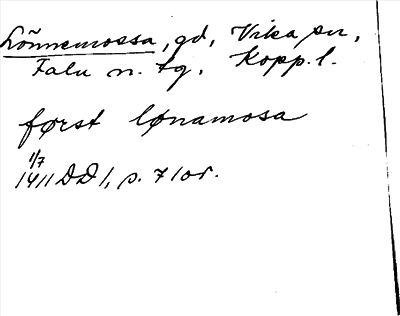 Lönnemossa, gd, Vika sn,
Falu n. tg. Kopp. l.
först lønamosa
1/7
1411 DD 1, s. 71 or.